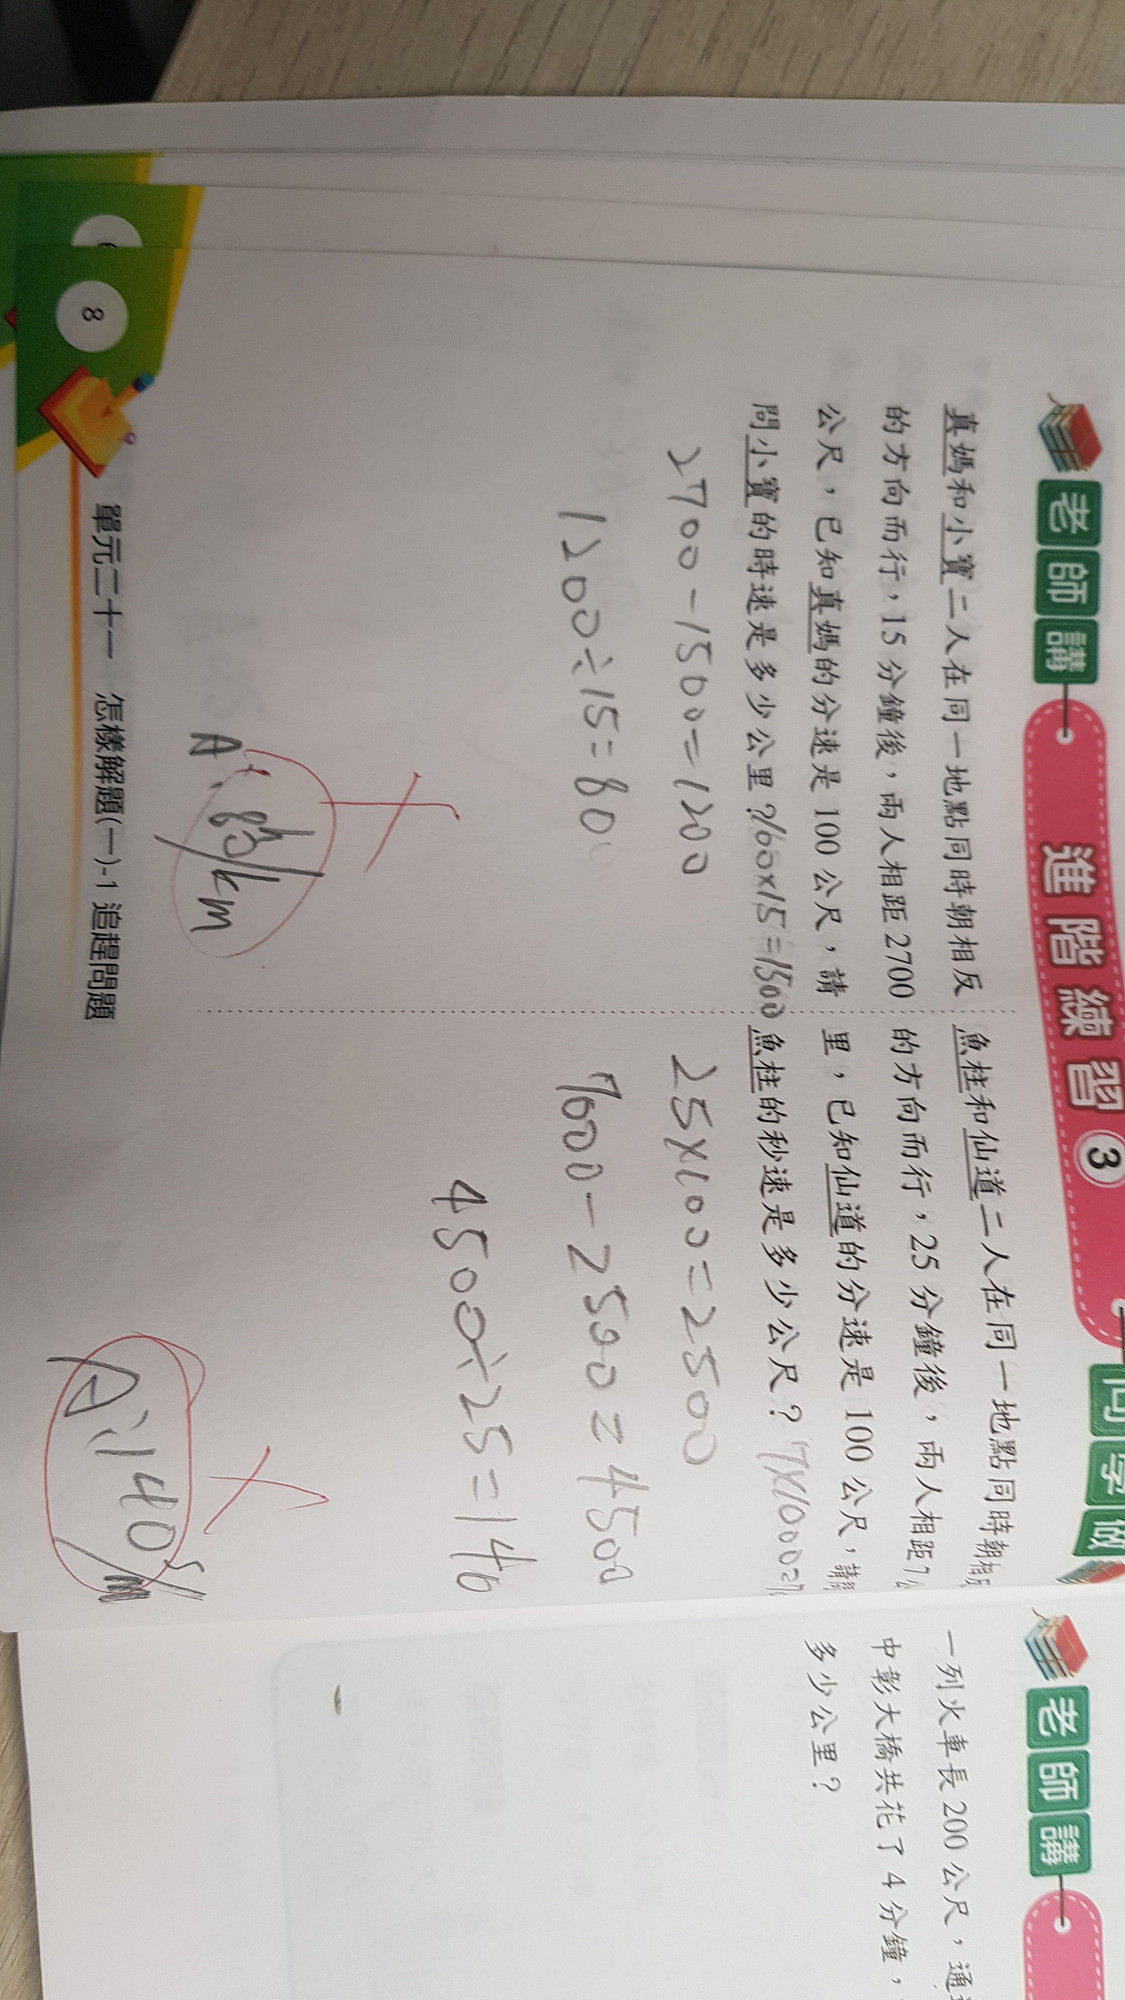 老師講
進階練習 3
同學做
真媽和小寶二人在同一地點同時朝相反
的方向而行，15分鐘後，兩人相距2700
公尺，已知真媽的分速是100公尺，請
問小寶的時速是多少公里？
100×15=1500
2700-1500=1200
1200÷15=80
A:
/km
魚柱和仙道二人在同一地點同時朝相反
的方向而行，25分鐘後，兩人相距7公
里，已知仙道的分速是100公尺，請問
魚柱的秒速是多少公尺？
7×1000=7
25×100=2500
7000-2500=4500
4500÷25=140
A:140
8
單元二十一 怎樣解題(一)-1 追趕問題
老師講
一列火車長200公尺，通
中彰大橋共花了4分鐘，
多少公里？